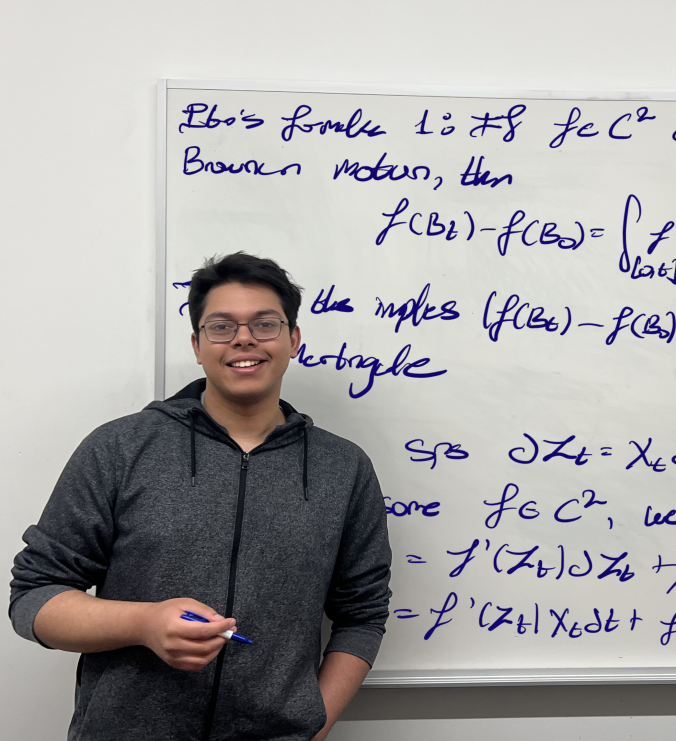 Ito's formula 1: If f ∈ C²
Brownian motion, then
f(B_t) - f(B_0) = ∫_[0,t] f
this implies (f(B_t) - f(B_0)
Martingale
sps dZ_t = X_t
some f ∈ C², we
= f'(Z_t) dZ_t +
= f'(Z_t) X_t dt + f